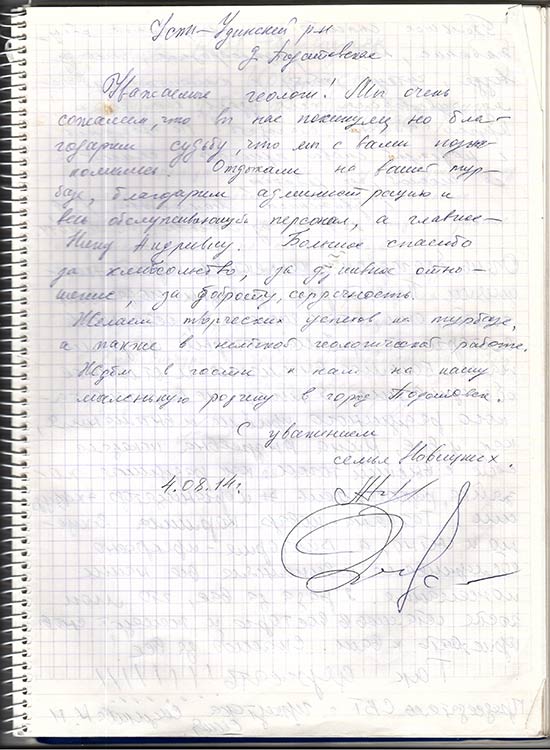 Усть-Удинский р-н
д. Подотовская
Уважаемые геологи! Мы очень
сожалеем, что вы нас покинули, но бла-
годарим судьбу, что мы с вами позна-
комились. Отдыхали на вашей тур-
базе, благодарим администрацию и
весь обслуживающий персонал, а главное -
Нину Андревну. Большое спасибо
за хлебосольство, за душевное отно-
шение, за доброту, сердечность.
Желаем творческих успехов на турбазе,
а также в нелёгкой геологической работе.
Ждём в гости к нам на нашу
маленькую родину в город
С уважением
семья Новицких.
4.08.14г.